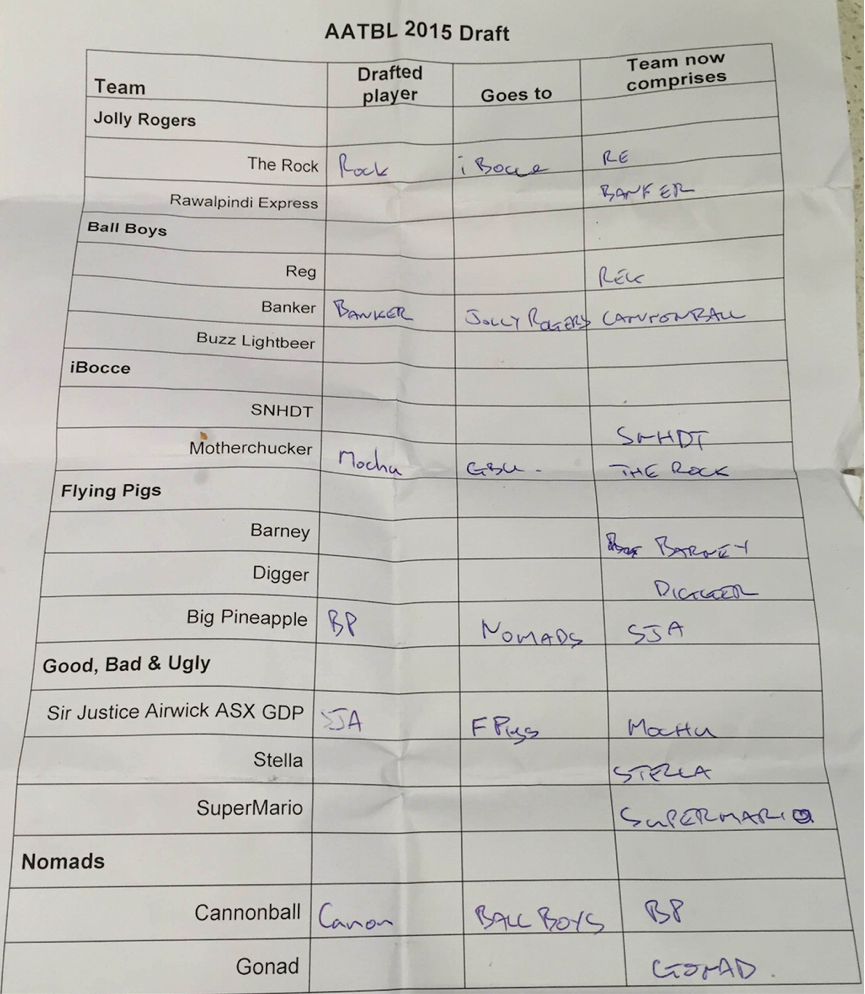 AATBL 2015 Draft
Team Drafted player Goes to Team now comprises
Jolly Rogers
The Rock Rock iBocce RE
Rawalpindi Express BANKER
Ball Boys
Reg REG
Banker BANKER JOLLY ROGERS CANNONBALL
Buzz Lightbeer
iBocce
SNHDT SNHDT
Motherchucker Mocha GBU. THE ROCK
Flying Pigs
Barney BARNEY
Digger DIGGER
Big Pineapple BP NOMADS SJA
Good, Bad & Ugly
Sir Justice Airwick ASX GDP SJA F Pigs MocHa
Stella STELLA
SuperMario SUPERMARIO
Nomads
Cannonball Canon BALL BOYS BP
Gonad GONAD.